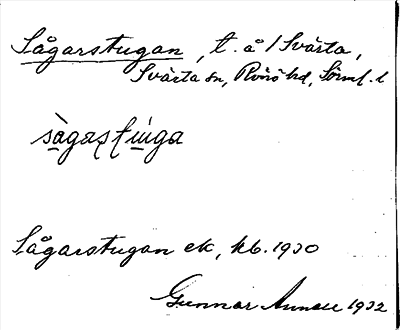 Sågarstugan, t. å / Svärta,
Svärta sn, Rönö hd, Sörml. l
Sågarstugan ek, kb. 1930
Gunnar 1932